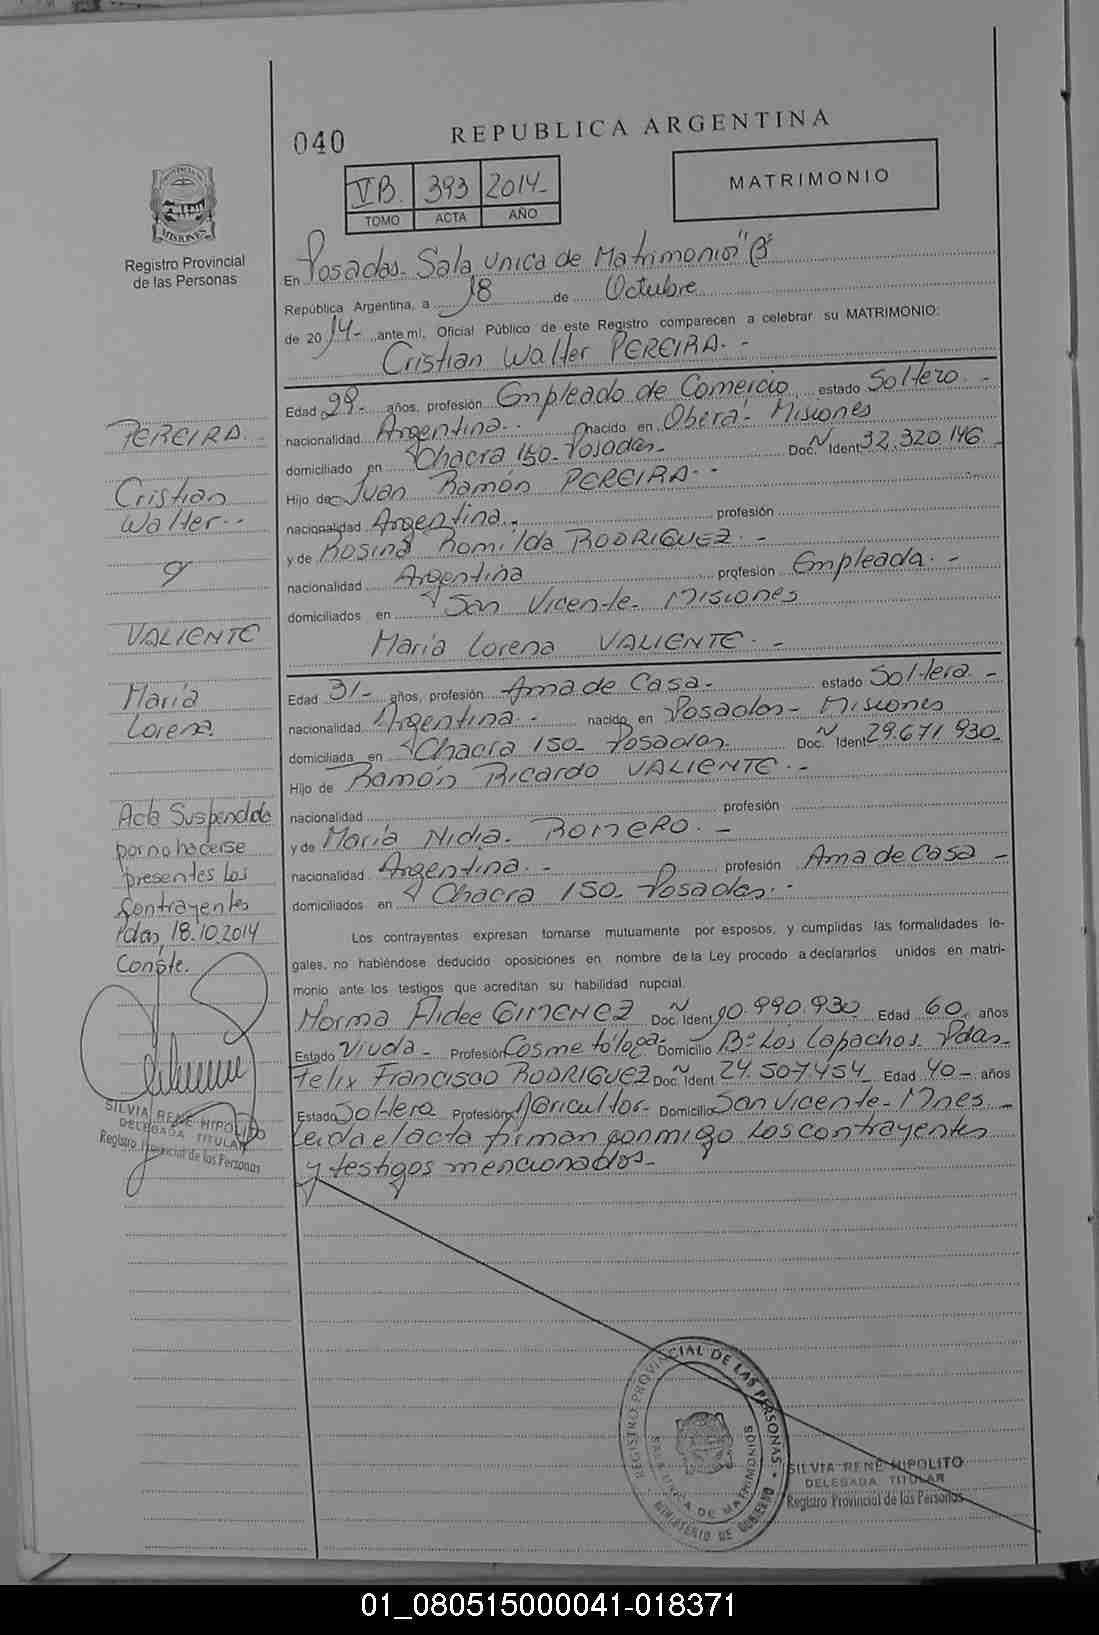 040
REPUBLICA ARGENTINA
VB. 393 2014-
TOMO ACTA AÑO
MATRIMONIO
PROVINCIA DE MISIONES
Registro Provincial
de las Personas
En Posadas- Sala Unica de Matrimonios "B"
República Argentina, a 18 de Octubre
de 2014- ante mí, Oficial Público de este Registro comparecen a celebrar su MATRIMONIO:
Cristian Walter PEREIRA.-
Edad 29- años, profesión Empleado de Comercio estado Soltero.-
nacionalidad Argentina.- nacido en Oberá- Misiones
domiciliado en Chacra 150- Posadas- Doc. N Ident 32.320.146
Hijo de Juan Ramón PEREIRA.-
nacionalidad Argentina.- profesión
y de Rosina Romilda RODRIGUEZ.-
nacionalidad Argentina profesión Empleada.-
domiciliados en San Vicente- Misiones
María Lorena VALIENTE.-
Edad 31- años, profesión Ama de Casa- estado Soltera.-
nacionalidad Argentina.- nacido en Posadas- Misiones
domiciliada en Chacra 150- Posadas- Doc. N Ident 29.671.930-
Hijo de Ramón Ricardo VALIENTE.-
nacionalidad profesión
y de María Nidia- ROMERO.-
nacionalidad Argentina.- profesión Ama de Casa-
domiciliados en Chacra 150- Posadas.-
Los contrayentes expresan tomarse mutuamente por esposos, y cumplidas las formalidades le-
gales, no habiéndose deducido oposiciones en nombre de la Ley procedo a declararlos unidos en matri-
monio ante los testigos que acreditan su habilidad nupcial.
Norma Aidee GIMENEZ Doc. N Ident 90.990.930 Edad 60 años
Estado Viuda- Profesión Cosmetóloga- Domicilio Bº Los Lapachos. Pdas-
Felix Francisco RODRIGUEZ Doc. N Ident 24.507.454 Edad 40- años
Estado Soltero Profesión Agricultor- Domicilio San Vicente- Mnes-
Leida el acta firman conmigo los contrayentes
y testigos mencionados-
PEREIRA.-
Cristian
Walter.-
y
VALIENTE
María
Lorena.
Acta Suspendida
por no hacerse
presentes los
contrayentes
Pdas, 18.10.2014
Conste.
SILVIA RENE HIPOLITO
DELEGADA TITULAR
Registro Provincial de las Personas
REGISTRO PROVINCIAL DE LAS PERSONAS
SALA UNICA DE MATRIMONIOS
MINISTERIO DE GOBIERNO
SILVIA RENE HIPOLITO
DELEGADA TITULAR
Registro Provincial de las Personas
01_080515000041-018371